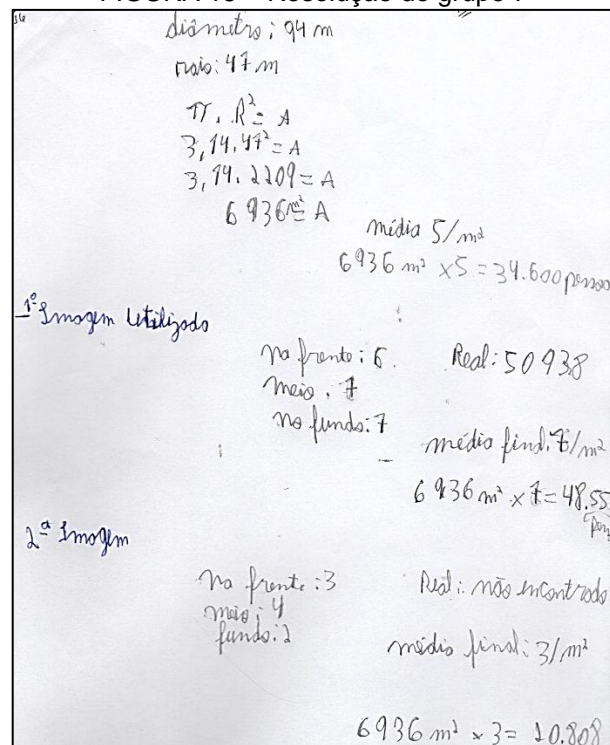 diâmetro: 94 m
raio: 47 m
π . R² = A
3,14 . 47² = A
3,14 . 2209 = A
6936 m² = A
média 5/m²
6936 m² x 5 = 34.600 pessoa
1º Imagem Utilizada
na frente: 6
meio: 7
no fundo: 7
Real: 50938
média final: 7/m²
6936 m² x 7 = 48.55
2ª Imagem
na frente: 3
meio: 4
fundo: 2
Real: não encontrado
média final: 3/m²
6936 m² x 3 = 20.808